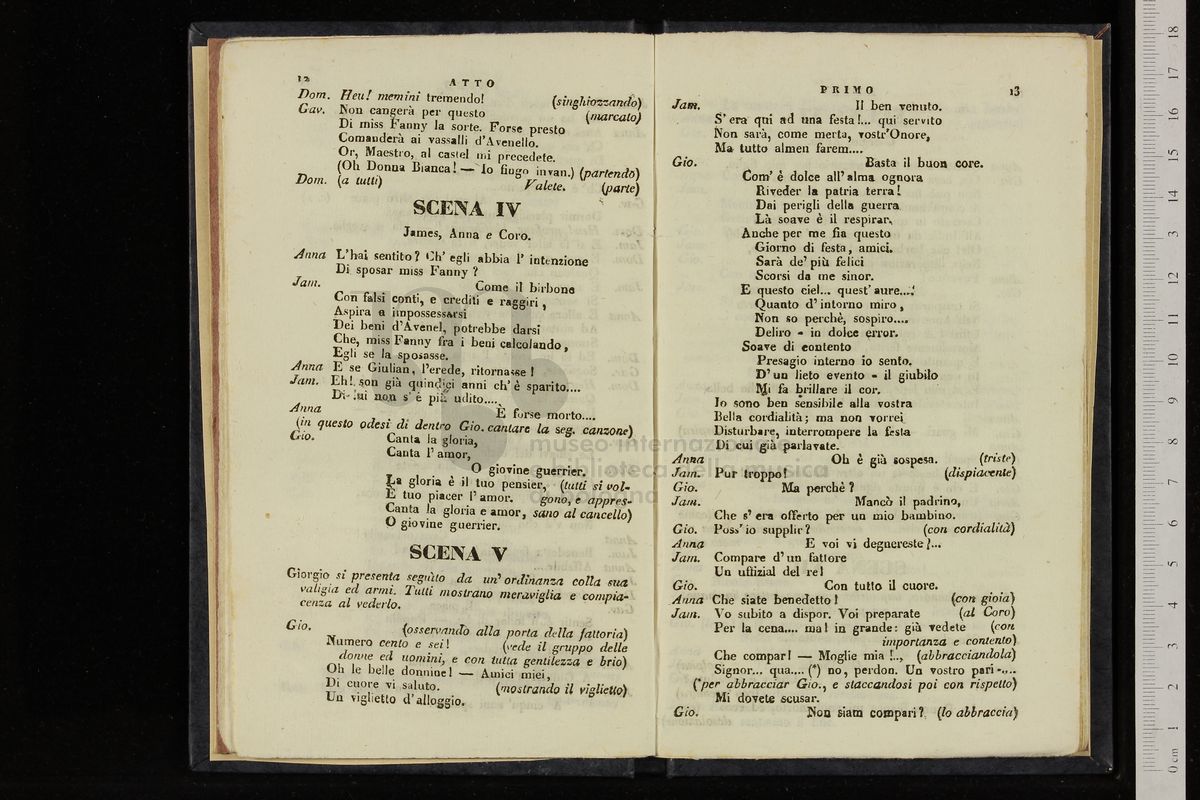 12
ATTO
Dom. Heu! memini tremendo! (singhiozzando)
Gav. Non cangerà per questo (marcato)
Di miss Fanny la sorte. Forse presto
Comanderà ai vassalli d'Avenello.
Or, Maestro, al castel mi precedete.
(Oh Donna Bianca! — Io fingo invan.) (partendo)
Dom. (a tutti) Valete. (parte)
SCENA IV
James, Anna e Coro.
Anna L'hai sentito? Ch' egli abbia l' intenzione
Di sposar miss Fanny?
Jam. Come il birbone
Con falsi conti, e crediti e raggiri,
Aspira a impossessarsi
Dei beni d'Avenel, potrebbe darsi
Che, miss Fanny fra i beni calcolando,
Egli se la sposasse.
Anna E se Giulian, l'erede, ritornasse!
Jam. Eh! son già quindici anni ch' è sparito....
Di lui non s' è più udito....
Anna E forse morto....
(in questo odesi di dentro Gio. cantare la seg. canzone)
Gio. Canta la gloria,
Canta l' amor,
O giovine guerrier.
La gloria è il tuo pensier, (tutti si vol-
E tuo piacer l' amor. gono, e appres-
Canta la gloria e amor, sano al cancello)
O giovine guerrier.
SCENA V
Giorgio si presenta seguito da un' ordinanza colla sua
valigia ed armi. Tutti mostrano meraviglia e compia-
cenza al vederlo.
Gio. (osservando alla porta della fattoria)
Numero cento e sei! (vede il gruppo delle
donne ed uomini, e con tutta gentilezza e brio)
Oh le belle donnine! — Amici miei,
Di cuore vi saluto. (mostrando il viglietto)
Un viglietto d'alloggio.
PRIMO
13
Jam. Il ben venuto.
S' era qui ad una festa!... qui servito
Non sarà, come merta, vostr'Onore,
Ma tutto almen farem....
Gio. Basta il buon core.
Com' è dolce all' alma ognora
Riveder la patria terra!
Dai perigli della guerra
Là soave è il respirar.
Anche per me fia questo
Giorno di festa, amici.
Sarà de' più felici
Scorsi da me sinor.
E questo ciel... quest' aure...;
Quanto d' intorno miro,
Non so perchè, sospiro....
Deliro - in dolce error.
Soave di contento
Presagio interno io sento.
D' un lieto evento - il giubilo
Mi fa brillare il cor.
Io sono ben sensibile alla vostra
Bella cordialità; ma non vorrei
Disturbare, interrompere la festa
Di cui già parlavate.
Anna Oh è già sospesa. (triste)
Jam. Pur troppo! (dispiacente)
Gio. Ma perchè?
Jam. Mancò il padrino,
Che s' era offerto per un mio bambino.
Gio. Poss' io supplir? (con cordialità)
Anna E voi vi degnereste!...
Jam. Compare d' un fattore
Un uffizial del re!
Gio. Con tutto il cuore.
Anna Che siate benedetto! (con gioia)
Jam. Vo subito a dispor. Voi preparate (al Coro)
Per la cena.... ma! in grande: già vedete (con
importanza e contento)
Che compar! — Moglie mia!.., (abbracciandola)
Signor... qua.... (*) no, perdon. Un vostro pari-....
(*per abbracciar Gio., e staccandosi poi con rispetto)
Mi dovete scusar.
Gio. Non siam compari? (lo abbraccia)
museo internazionale
biblioteca della musica
di bologna
0 cm 1 2 3 4 5 6 7 8 9 10 11 12 13 14 15 16 17 18